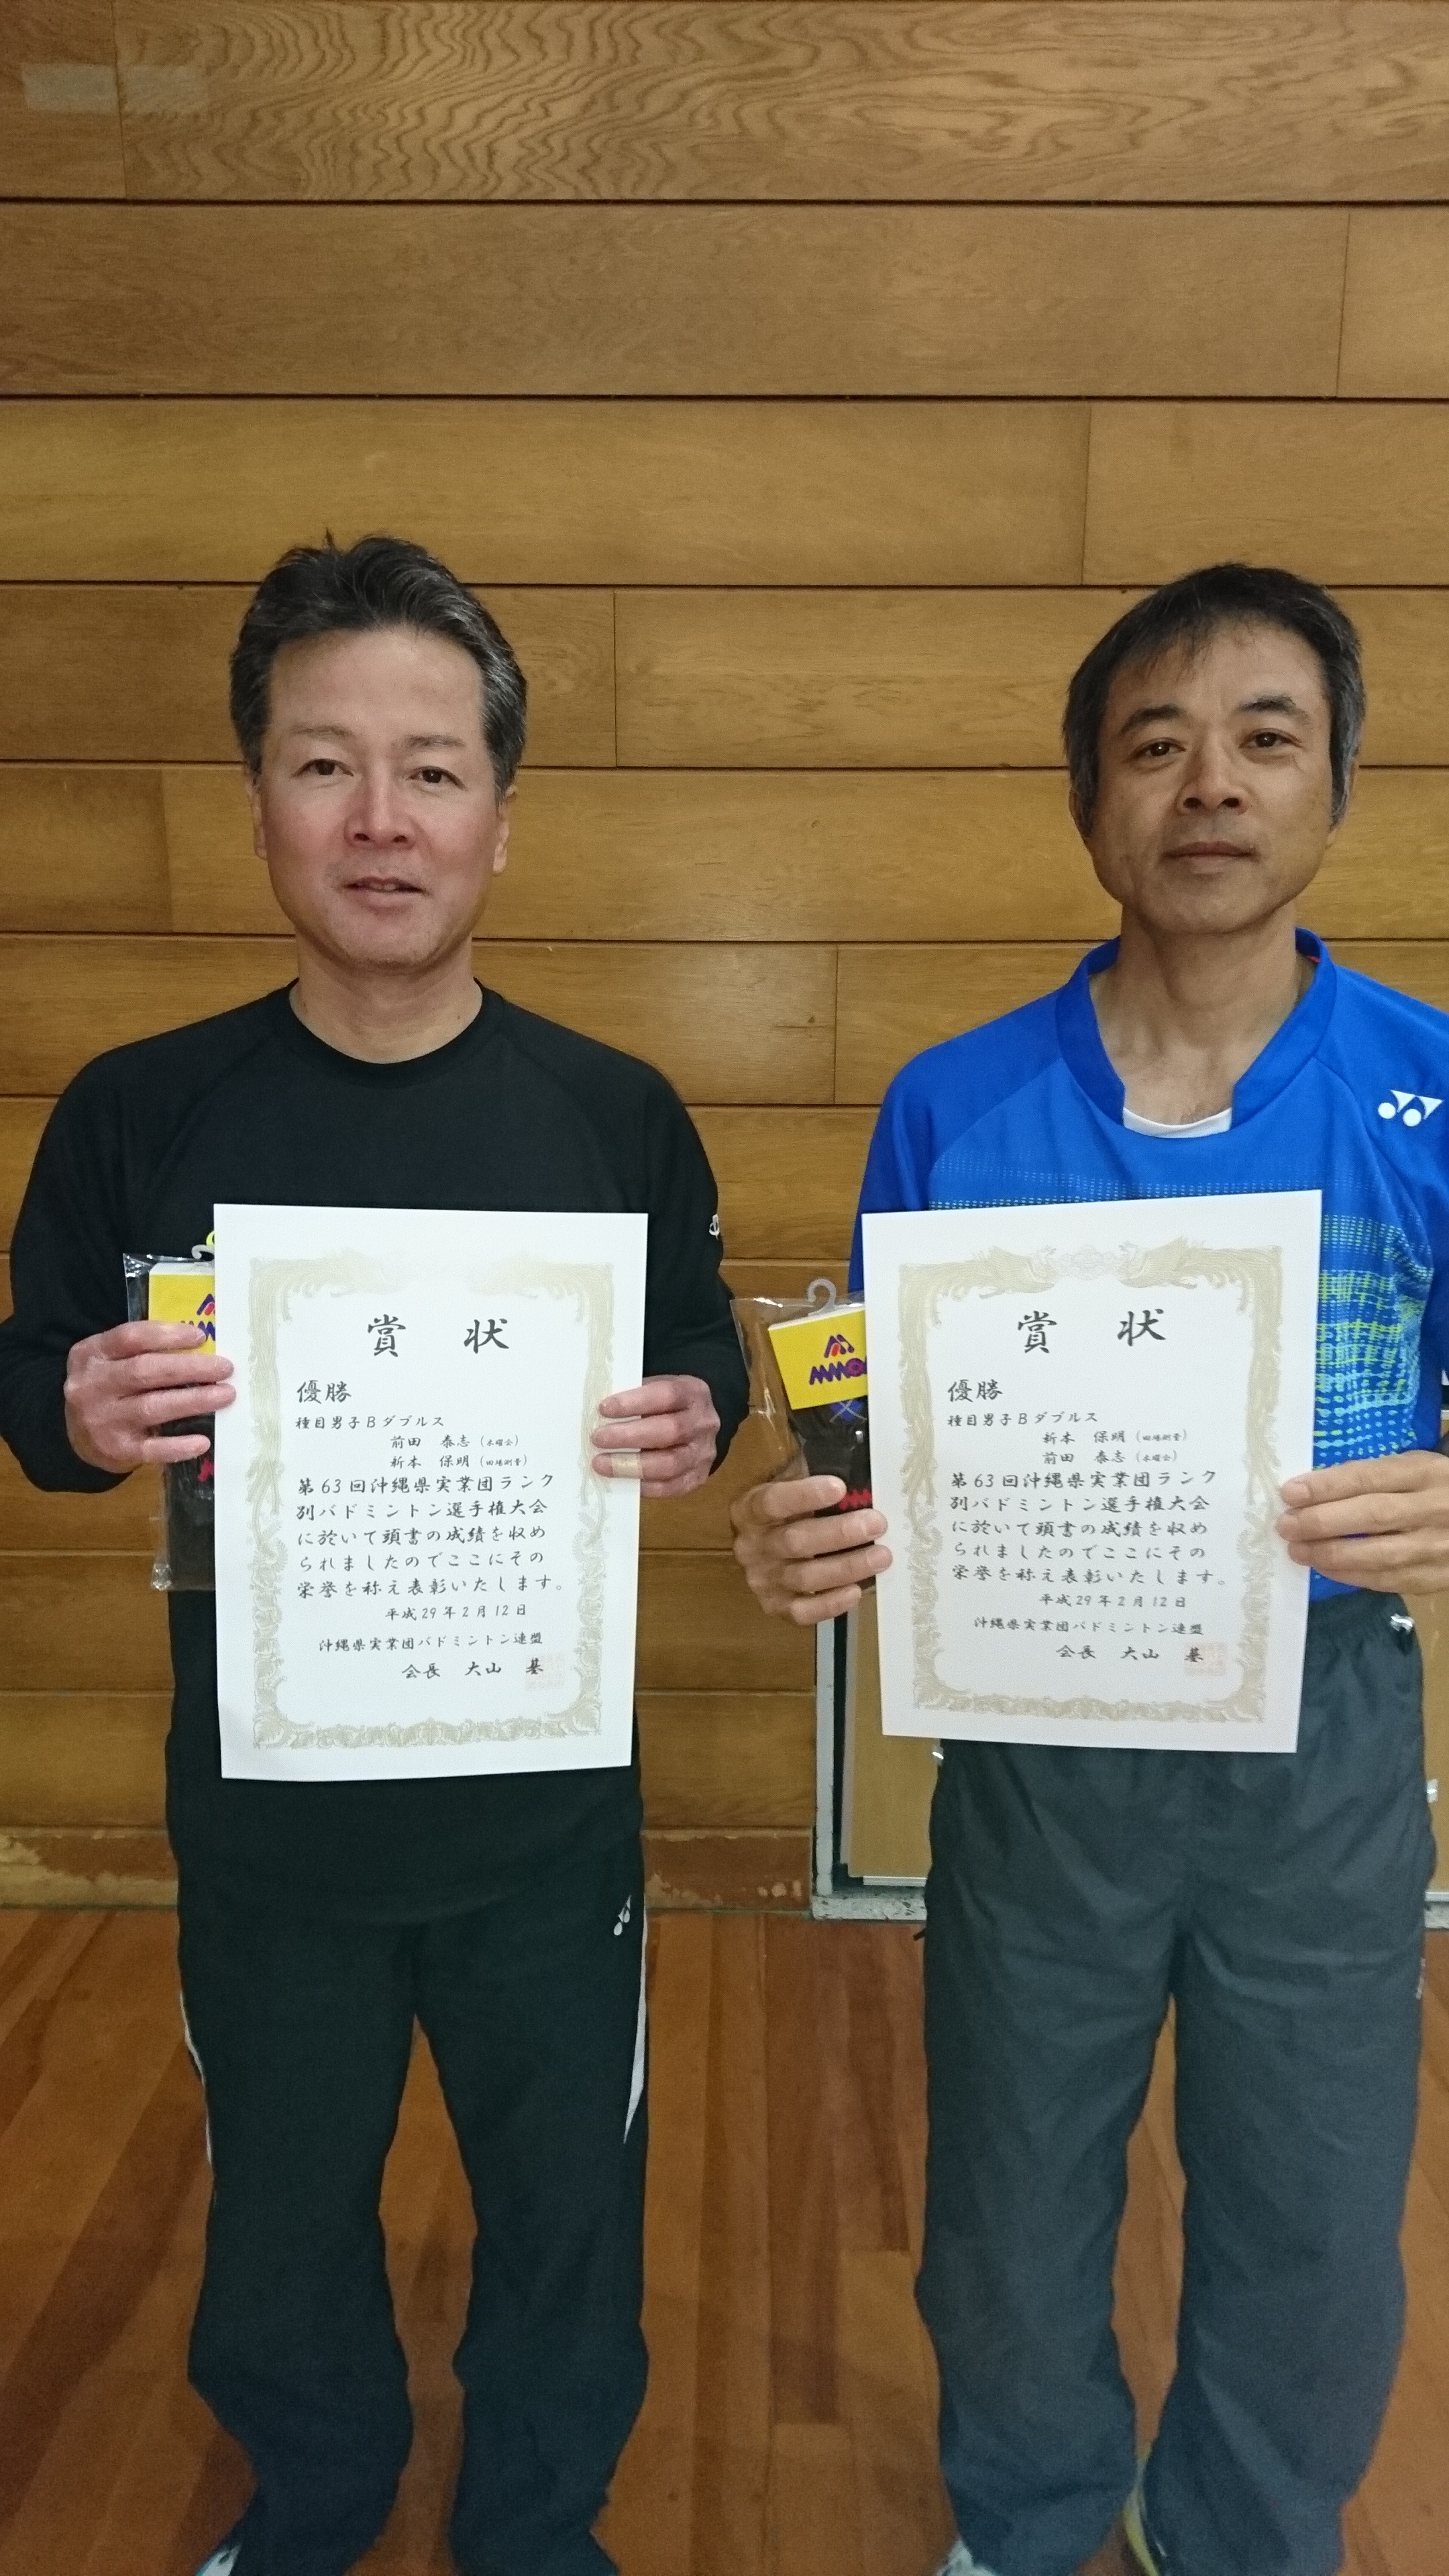 賞 状
優勝
種目男子Bダブルス
前田 泰志 (木曜会)
新本 保明
第63回沖縄県実業団ランク
別バドミントン選手権大会
に於いて頭書の成績を収め
られましたのでここにその
栄誉を称え表彰いたします。
平成29年2月12日
沖縄県実業団バドミントン連盟
会長 大山 基
賞 状
優勝
種目男子Bダブルス
新本 保明
前田 泰志 (木曜会)
第63回沖縄県実業団ランク
別バドミントン選手権大会
に於いて頭書の成績を収め
られましたのでここにその
栄誉を称え表彰いたします。
平成29年2月12日
沖縄県実業団バドミントン連盟
会長 大山 基